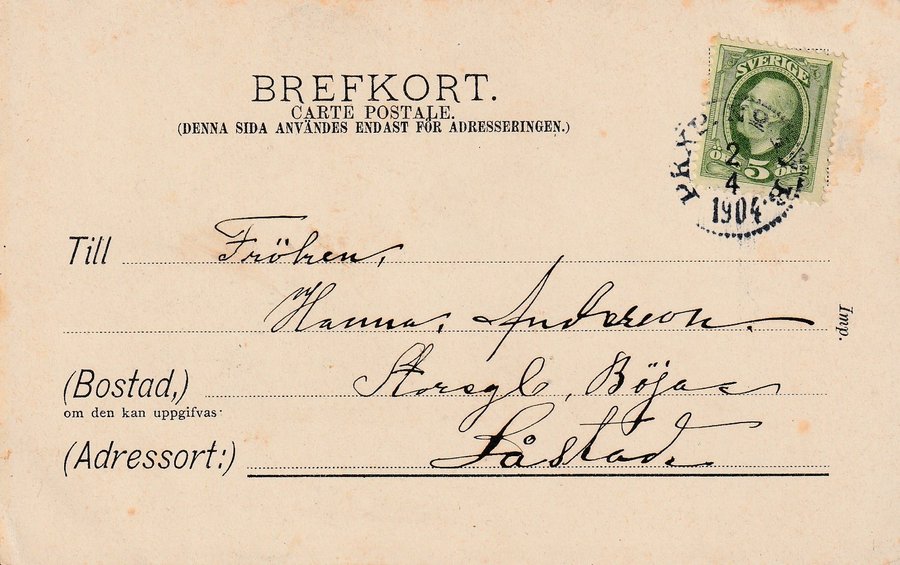 BREFKORT.
CARTE POSTALE.
(DENNA SIDA ANVÄNDES ENDAST FÖR ADRESSERINGEN.)
SVERIGE
5
2
4
1904
Till Fröken,
Hanna, Anderson.
Imp.
(Bostad,) Böja
om den kan uppgifvas
(Adressort:) Låstad